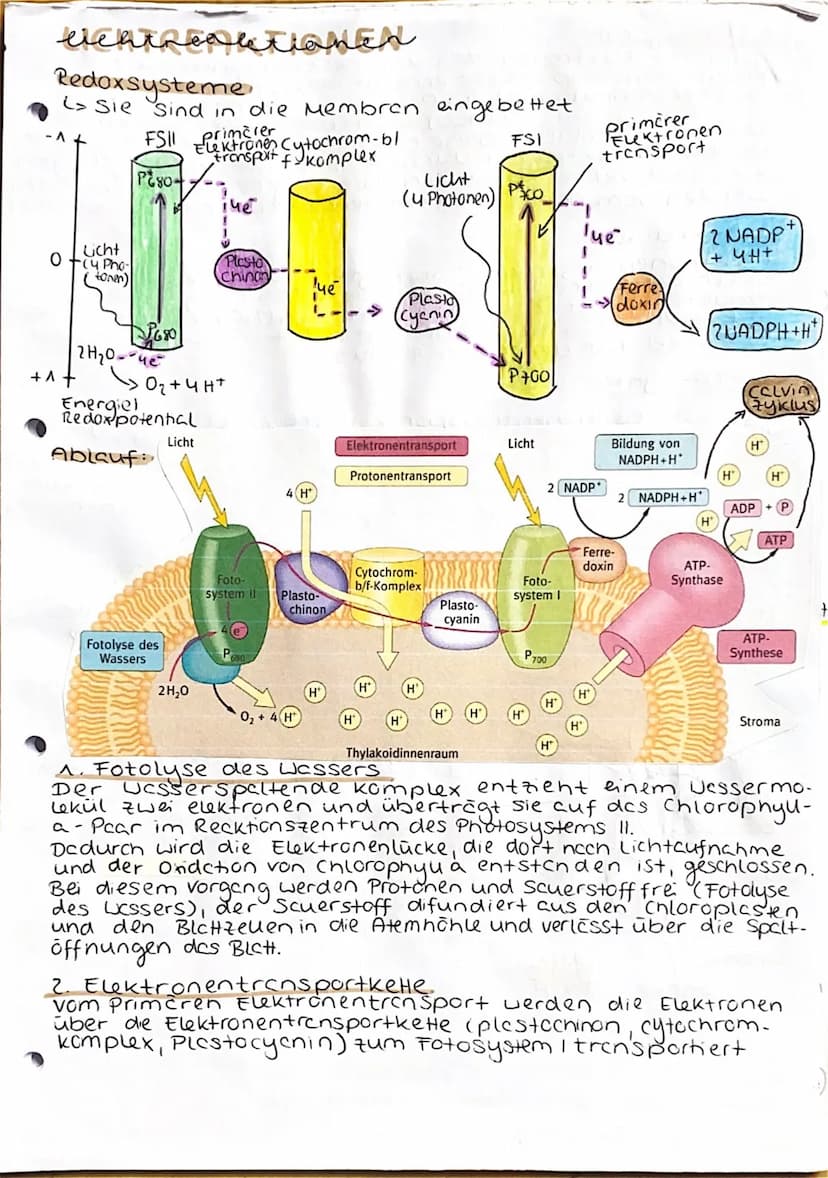 LICHTREAKTIONEN
Lichtreaktionen
Redoxsysteme
↳ Sie sind in die Membran eingebettet
-1
0
+1
Energie/
Redoxpotential
FSII
primärer
Elektronen
transport
Cytochrom-b/
f-Komplex
P*680
4e⁻
Licht
(4 Pho-
tonen)
Plasto
chinon
P680
2H₂O
4e⁻
O₂ + 4H⁺
4e⁻
Plasto
cyanin
Licht
(4 Photonen)
FSI
primärer
Elektronen
transport
P*700
4e⁻
P700
Ferre
doxin
2NADP⁺
+ 4H⁺
2NADPH+H⁺
Calvin
zyklus
Ablauf:
Licht
Elektronentransport
Protonentransport
Licht
Bildung von
NADPH+H⁺
4 H⁺
2 NADP⁺
2 NADPH+H⁺
H⁺
H⁺
H⁺
H⁺
ADP + P
ATP
Foto-
system II
Plasto-
chinon
Cytochrom-
b/f-Komplex
Plasto-
cyanin
Foto-
system I
Ferre-
doxin
ATP-
Synthase
4 e⁻
P680
P700
Fotolyse des
Wassers
2H₂O
O₂ + 4 H⁺
H⁺ H⁺ H⁺
H⁺ H⁺ H⁺ H⁺ H⁺ H⁺ H⁺ H⁺ H⁺
ATP-
Synthese
Stroma
Thylakoidinnenraum
1. Fotolyse des Wassers
Der Wasserspaltende Komplex entzieht einem Wassermo-
lekül zwei elektronen und überträgt sie auf das Chlorophyll-
a-Paar im Reaktionszentrum des Photosystems II.
Dadurch wird die Elektronenlücke, die dort nach Lichtaufnahme
und der Oxidation von Chlorophyll a entstanden ist, geschlossen.
Bei diesem Vorgang werden Protonen und Sauerstoff frei (Fotolyse
des Wassers), der Sauerstoff difundiert aus den Chloroplasten
und den Blattzellen in die Atemhöhle und verlässt über die Spalt-
öffnungen das Blatt.
2. Elektronentransportkette
Vom Primären Elektronentransport werden die Elektronen
über die Elektronentransportkette (plastochinon, Cytochrom-
komplex, Plastocyanin) zum Fotosystem I transportiert